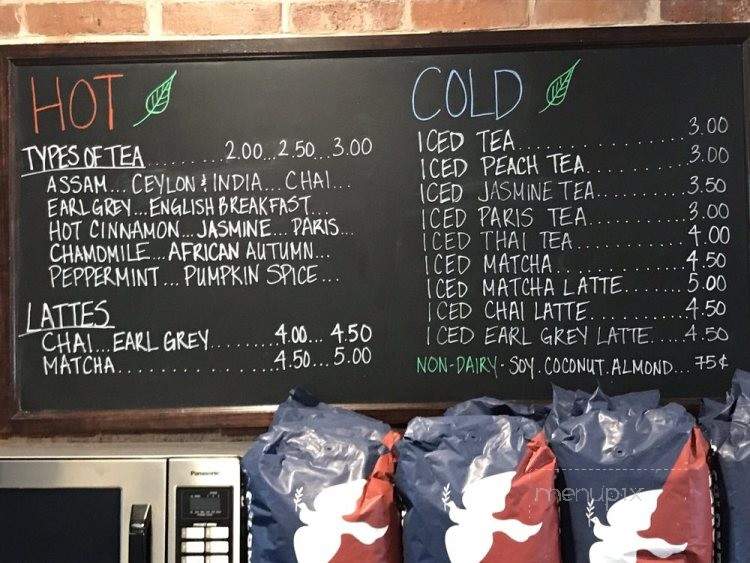 HOT
TYPES OF TEA........2.00...2.50...3.00
ASSAM...CEYLON & INDIA...CHAI...
EARL GREY...ENGLISH BREAKFAST...
HOT CINNAMON...JASMINE...PARIS...
CHAMOMILE...AFRICAN AUTUMN...
PEPPERMINT...PUMPKIN SPICE...
LATTES
CHAI...EARL GREY........4.00...4.50
MATCHA..................4.50...5.00
COLD
ICED TEA..................3.00
ICED PEACH TEA............3.00
ICED JASMINE TEA..........3.50
ICED PARIS TEA............3.00
ICED THAI TEA.............4.00
ICED MATCHA...............4.50
ICED MATCHA LATTE.........5.00
ICED CHAI LATTE...........4.50
ICED EARL GREY LATTE.....4.50
NON-DAIRY - SOY. COCONUT. ALMOND... 75¢
Panasonic
menupix